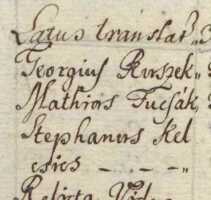 Latus translat
Georgius Kurszek
Mathias Tucsák
Stephanus Kel
esics - - - "
Relicta